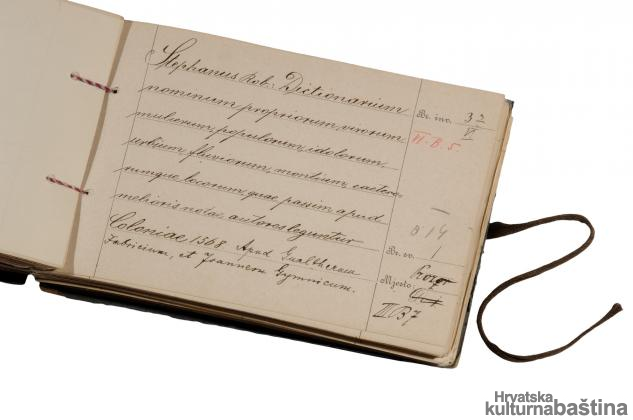 Stephanus Rob.: Dictionarium
nominum propriorum, virorum
mulierum, populorum, idolorum,
urbium, fluviorum, montium, caetero-
rumque locorum, quae passim apud
melioris notae autores leguntur
Coloniae 1568 Apud Gualtherum
Fabricium, et Joannem Gymnicum.
Br. inv. 32
VI
VI. B. 5.
Br. sv. 1
Mjesto:
III 37
Hrvatska
kulturnabaština